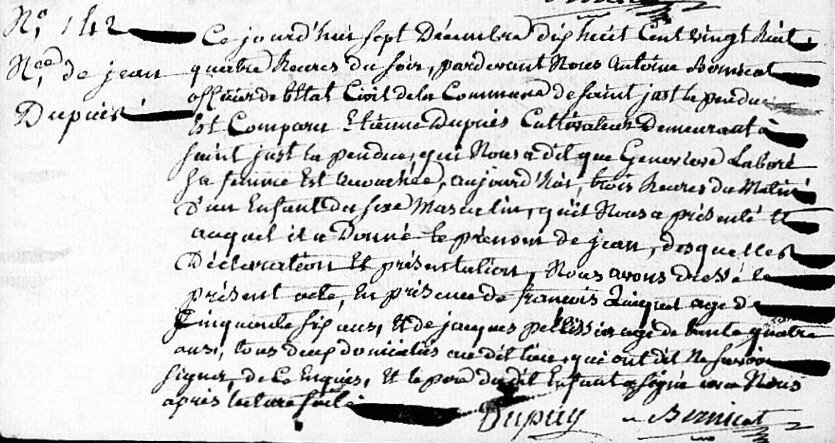 N.º 142
N.ce de jean
Dupuis
Ce jourd'hui sept Décembre dix huit Cent vingt huit,
quatre heures du soir, pardevant Nous Antoine Bernicat
officier de l'état Civil de la Commune de saint just la pendue
Est Comparu Etienne Dupuis Cultivateur Demeurant à
saint just la pendue, qui Nous a dit que Genevieve Laboré
sa femme Est accouchée, aujourd'hui, trois heures du Matin
d'un Enfant du sexe Masculin, qu'il Nous a présenté et
auquel il a Donné le prénom de jean, desquelles
Déclaration et présentation, Nous avons dressé le
présent acte, en présence de francois agé de
Cinquante six ans, et de jacques pellissier agé de quatre
ans, tous deux domiciliés au dit lieu, qui ont dit ne savoir
signer, de Ce Enquis, et le pere du dit Enfant a signé avec Nous
après lecture faite
Dupuy Bernicat